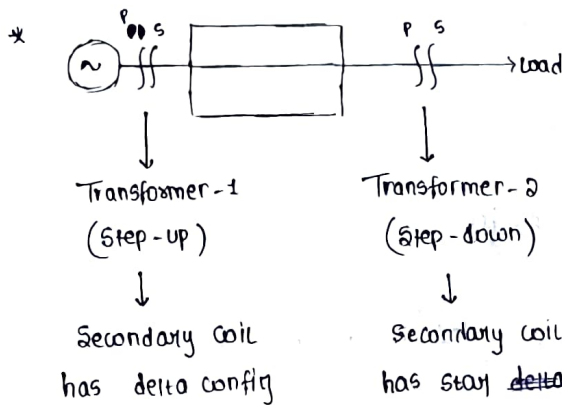 *
P S
~
P S
Load
Transformer-1
(Step-up)
Secondary coil
has delta config
Transformer-2
(Step-down)
Secondary coil
has star delta